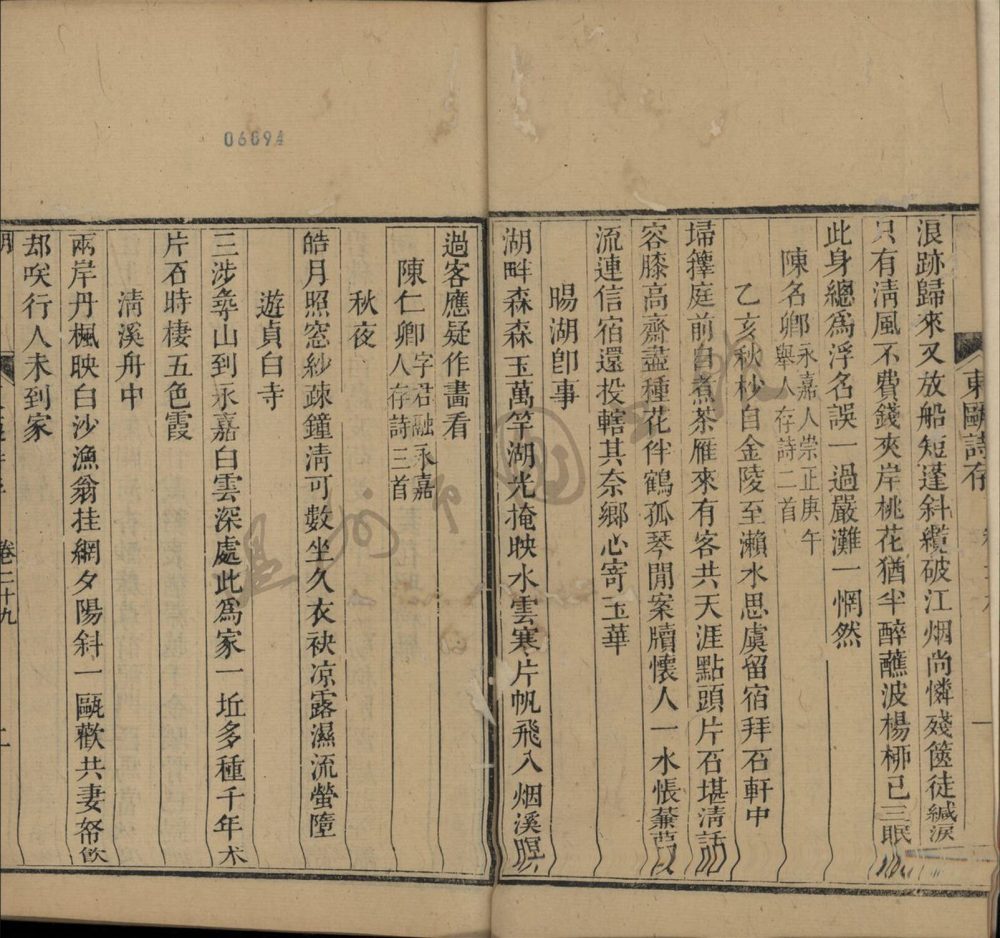 東甌詩存
浪跡歸來又放船短蓬斜纜破江烟尚憐殘篋徒緘淚
只有清風不費錢夾岸桃花猶半醉蘸波楊柳已三眠
此身總爲浮名誤一過嚴灘一惘然
陳名卿永嘉人崇正庚午舉人存詩二首
乙亥秋杪自金陵至瀨水思虞留宿拜石軒中
埽籜庭前自煮茶雁來有客共天涯點頭片石堪清話
容膝高齋盡種花伴鶴孤琴閒案牘懷人一水悵蒹葭
流連信宿還投轄其奈鄉心寄玉華
暘湖卽事
湖畔森森玉萬竿湖光掩映水雲寒片帆飛入烟溪暝
過客應疑作畫看
陳仁卿字君融永嘉人存詩三首
秋夜
皓月照窓紗疎鐘淸可數坐久衣袂凉露濕流螢墮
遊貞白寺
三涉彜山到永嘉白雲深處此爲家一坵多種千年朮
片石時棲五色霞
淸溪舟中
兩岸丹楓映白沙漁翁挂網夕陽斜一甌歡共妻帑飲
却咲行人未到家
卷二十九
二
06894